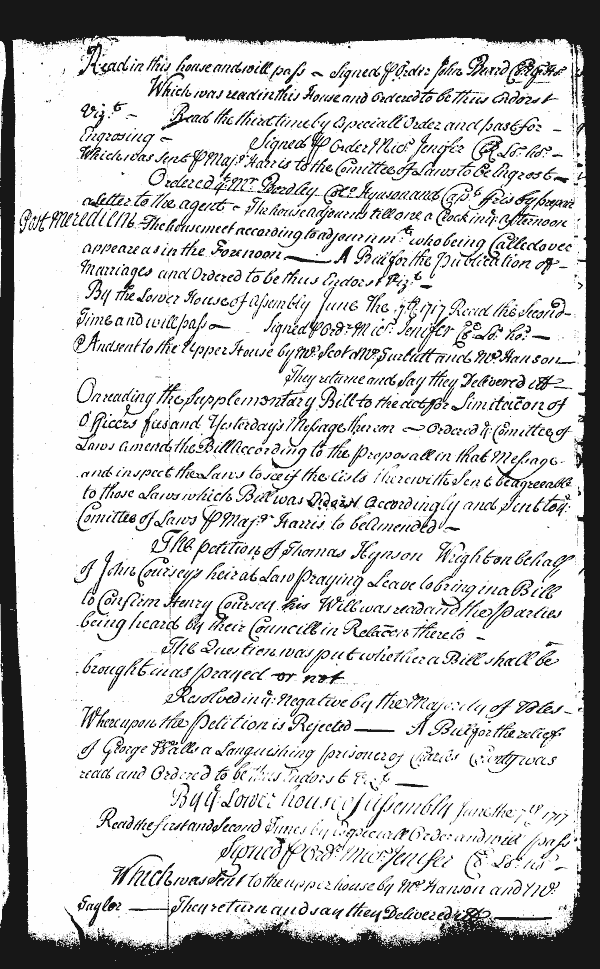 Read in this house and will pass - Signed ℘ Order John Beard
Which was read in this House and ordered to be thus Endorst
Vizt - Read the third time by Especiall Order and past for -
Engrosing - Signed ℘ Order Mics Jenifer Cl Lo: ho: -
Which was Sent ℘ Majr Harris to the Comittee of Laws to be Ingrost -
Ordered yt Mr Bordley Colo Hynson and Capt Frisby prepare
a Letter to the agent - The house adjourns till one a Clock in ye afternoon
Post Meredien The house meet according to adjournmt who being Called over
appeare as in the Forenoon — A Bill for the publication of -
Marriages and Ordered to be thus Endorst Vizt -
By the Lower House of Assembly June the 7th 1717 Read the Second
Time and will pass - Signed ℘ Ordr Mics Jenifer Cl Lo: ho: -
And sent to the Upper House by Mr Scot Mr and Mr Hanson
They returne and Say they Delivered itt -
On reading the Supplementary Bill to the act for Limitation of
Officers fees and Yesterday's Message thereon - Ordered ye Comittee of
Laws amend the Bill According to the proposall in that Message
and inspect the Laws to see if the lists therewith Sent be agreeable
to those Laws which Bill was Endorst accordingly and Sent to ye
Comittee of Laws ℘ Majr Harris to be Amended -
The petition of Thomas Hynson Wright on behalf
of John Coursey's heir at Law praying Leave to bring in a Bill
to Confirm Henry Coursey his Will was read and the parties
being heard by their Councill in Relacon thereto -
The Question was put whether a Bill shall be
brought in as prayed or not
Resolved in ye Negative by the Majority of Votes -
Whereupon the Petition is Rejected — A Bill for the relief
of George Walls a Languishing prisoner of Charles County was
read and Ordered to be thus Endorst Vizt —
By ye Lower house of Assembly June the 7th 1717
Read the first and Second Times by Especiall Order and will pass
Signed ℘ Ordr Mics Jenifer Cl Lo: ho: -
Which was Sent to the upper house by Mr Hanson and Mr
Taylor — They return and say they Delivered itt —